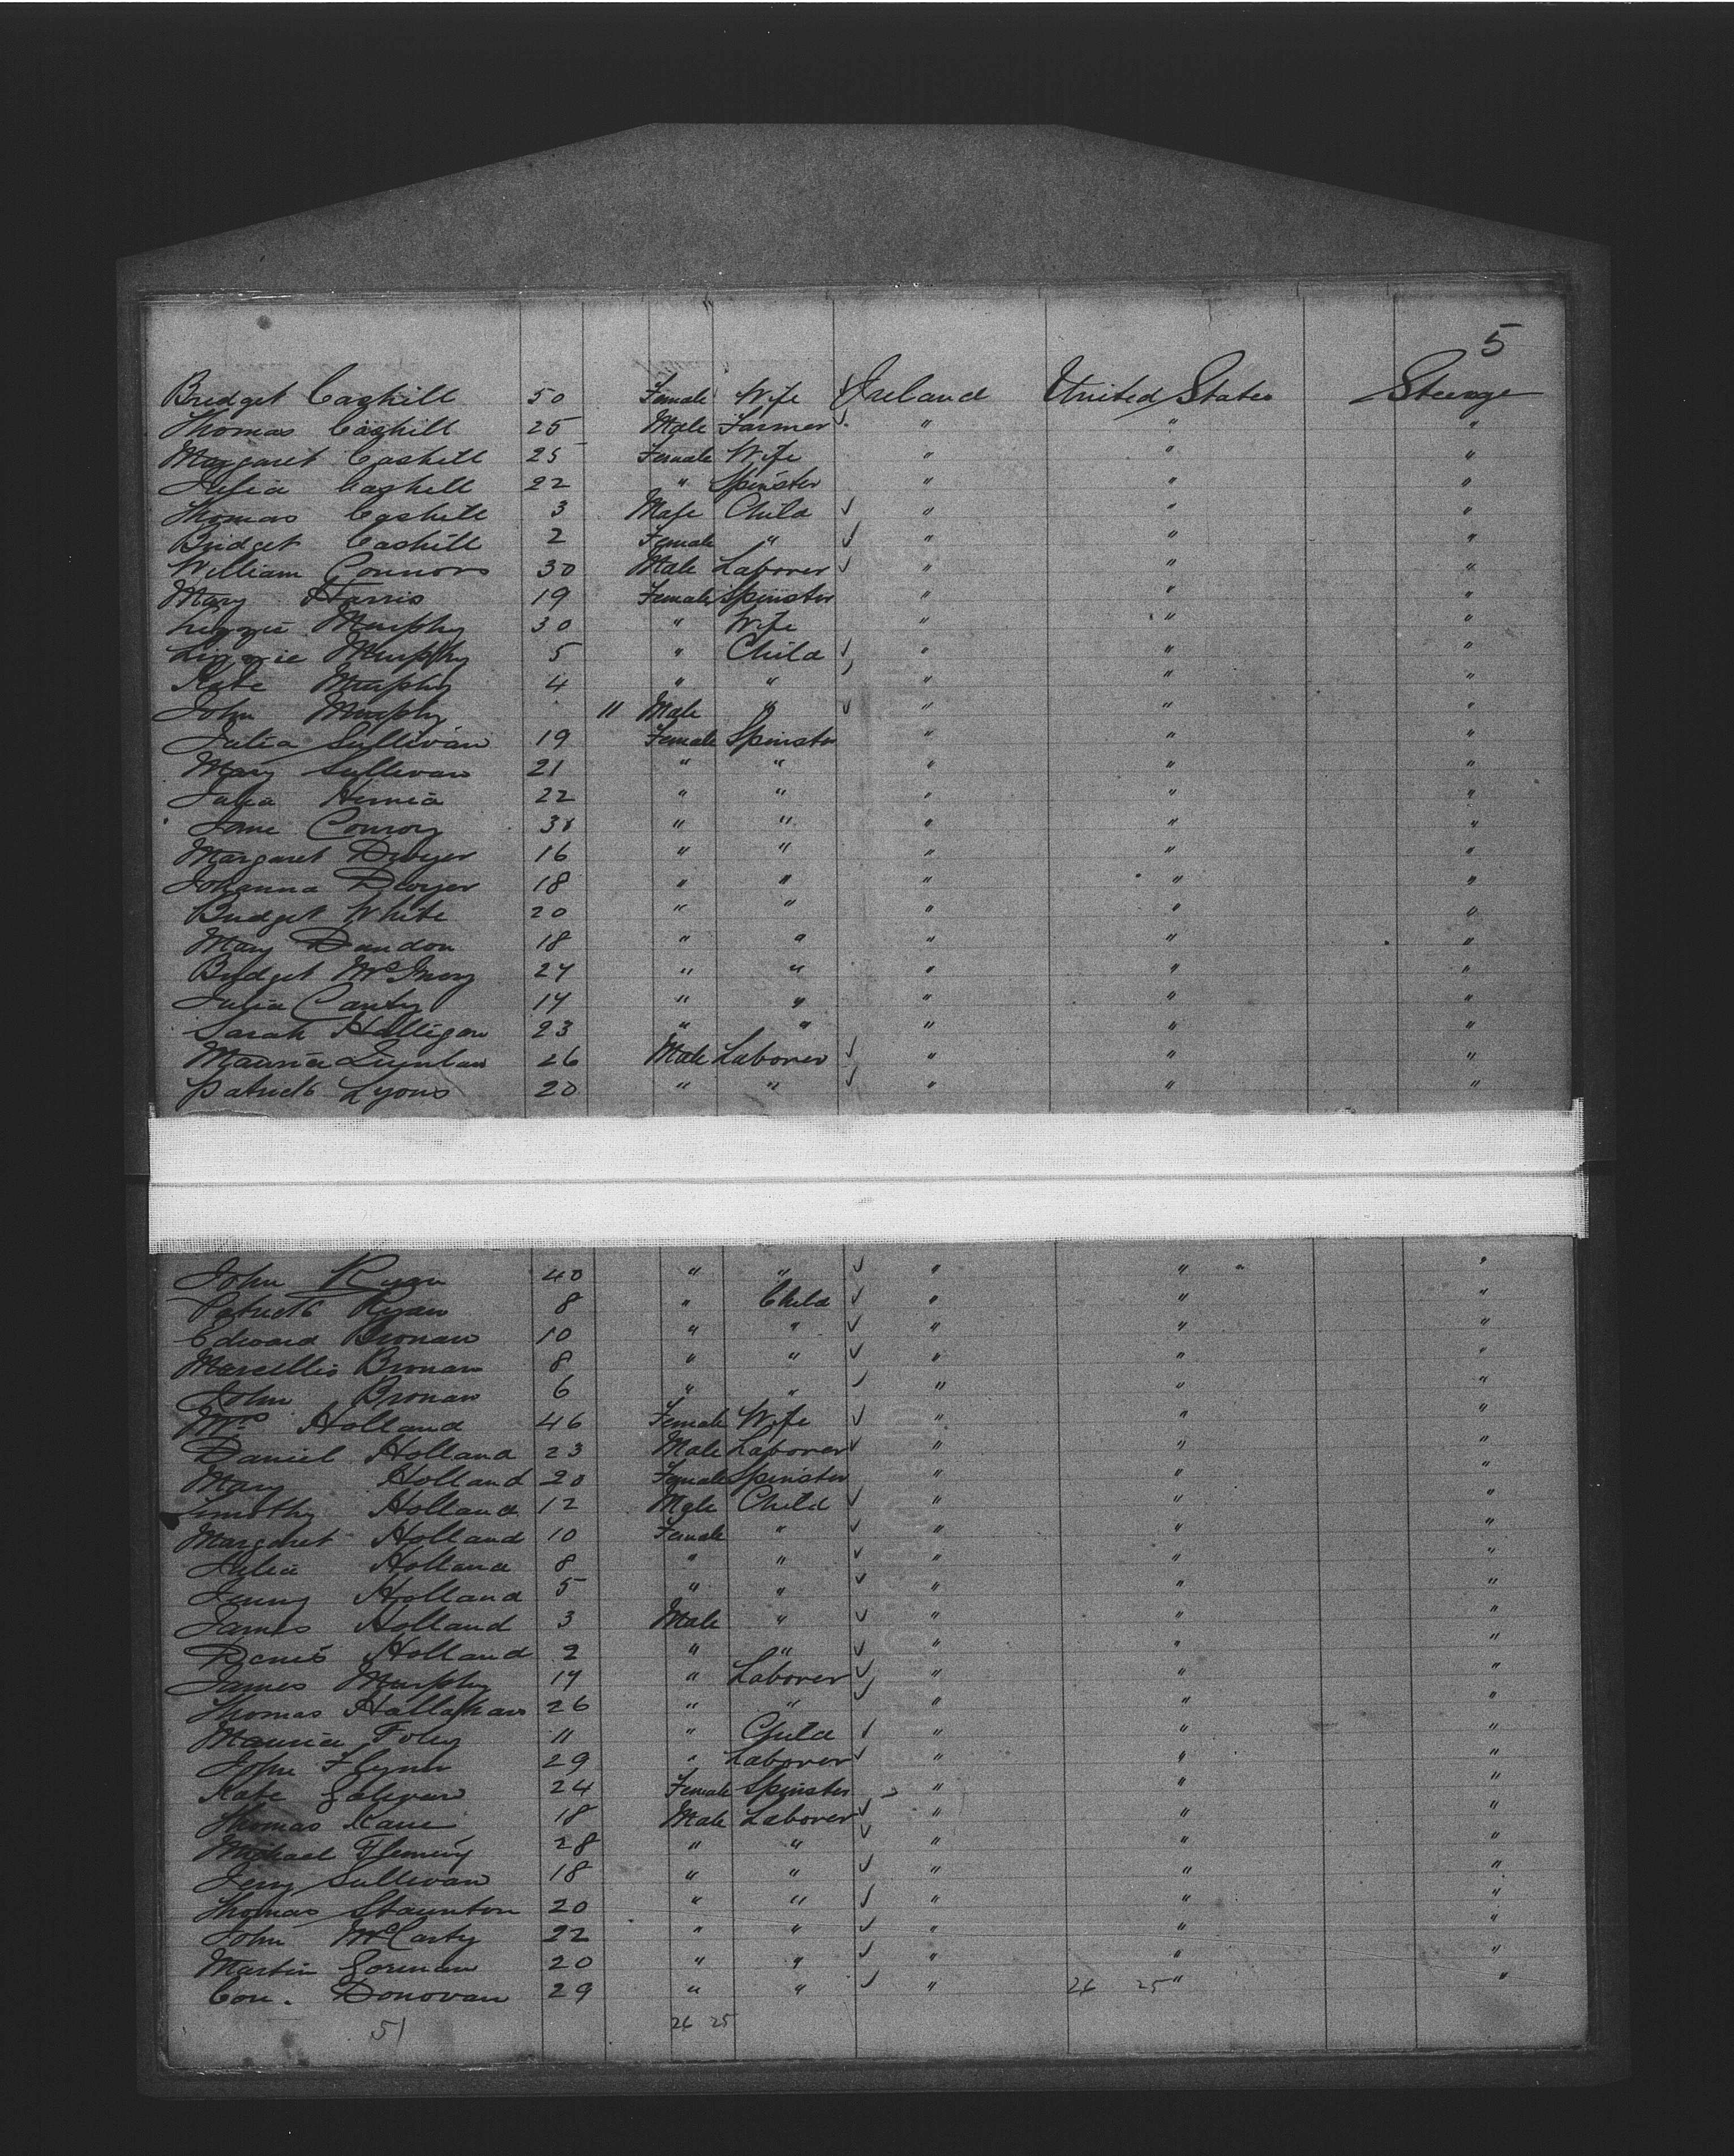 5
Bridget Cashill 50 Female Wife ✓ Ireland United States Steerage
Thomas Cashill 25 Male Farmer ✓ " " "
Margaret Cashill 25 Female Wife " " "
Julia Cashill 22 " Spinster " " "
Thomas Cashill 3 Male Child ✓ " " "
Bridget Cashill 2 Female " ✓ " " "
William Connors 30 Male Laborer ✓ " " "
Mary Harris 19 Female Spinster " " "
Lizzie Murphy 30 " Wife " " "
Lizzie Murphy 5 " Child ✓ " " "
Kate Murphy 4 " " ✓ " " "
John Murphy 11 Male " ✓ " " "
Julia Sullivan 19 Female Spinster " " "
Mary Sullivan 21 " " " " "
Julia 22 " " " " "
Jane Conroy " " " " "
Margaret Dwyer 16 " " " " "
Johanna Dwyer 18 " " " " "
Bridget White 20 " " " " "
Mary Dundon 18 " " " " "
Bridget " " " " "
Julia Canty " " " " "
Sarah Halligan 23 " " " " "
Maurice Quinlan 26 Male Laborer ✓ " " "
Patrick Lyons 20 " " ✓ " " "
John Ryan 40 " " ✓ " " "
Patrick Ryan 8 " Child ✓ " " "
Edward Bronan 10 " " ✓ " " "
Marcellis Bronan 8 " " ✓ " " "
John Bronan 6 " " ✓ " " "
Mrs Holland 46 Female Wife ✓ " " "
Daniel Holland 23 Male Laborer ✓ " " "
Mary Holland 20 Female Spinster " " "
Timothy Holland 12 Male Child ✓ " " "
Margaret Holland 10 Female " ✓ " " "
Julia Holland 8 " " ✓ " " "
Jenny Holland 5 " " ✓ " " "
James Holland 3 Male " ✓ " " "
Denis Holland 2 " " ✓ " " "
James Murphy " Laborer ✓ " " "
Thomas Hallahan 26 " " ✓ " " "
Maurice Foley 11 " Child ✓ " " "
John Flynn 29 " Laborer ✓ " " "
Kate Galivan 24 Female Spinster " " "
Thomas Kane 18 Male Laborer ✓ " " "
Michael Fleming 28 " " ✓ " " "
Jerry Sullivan 18 " " ✓ " " "
Thomas Staunton 20 " " ✓ " " "
John McCarty 22 " " ✓ " " "
Martin Gorman 20 " " ✓ " " "
Con. Donovan 29 " " ✓ " 26 25 " "
51 26 25